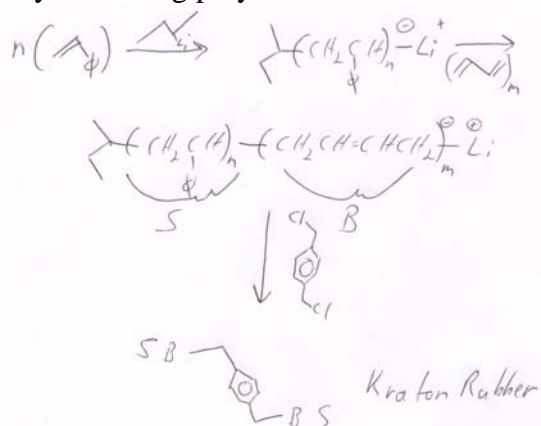 n( ϕ ) Li (CH₂CH)ₙ ⊖ Li⁺
ϕ ( )ₘ
(CH₂CH)ₙ (CH₂CH=CHCH₂)ₘ ⊖ ⊕ Li
ϕ
S B
Cl
Cl
S B
B S Kraton Rubber